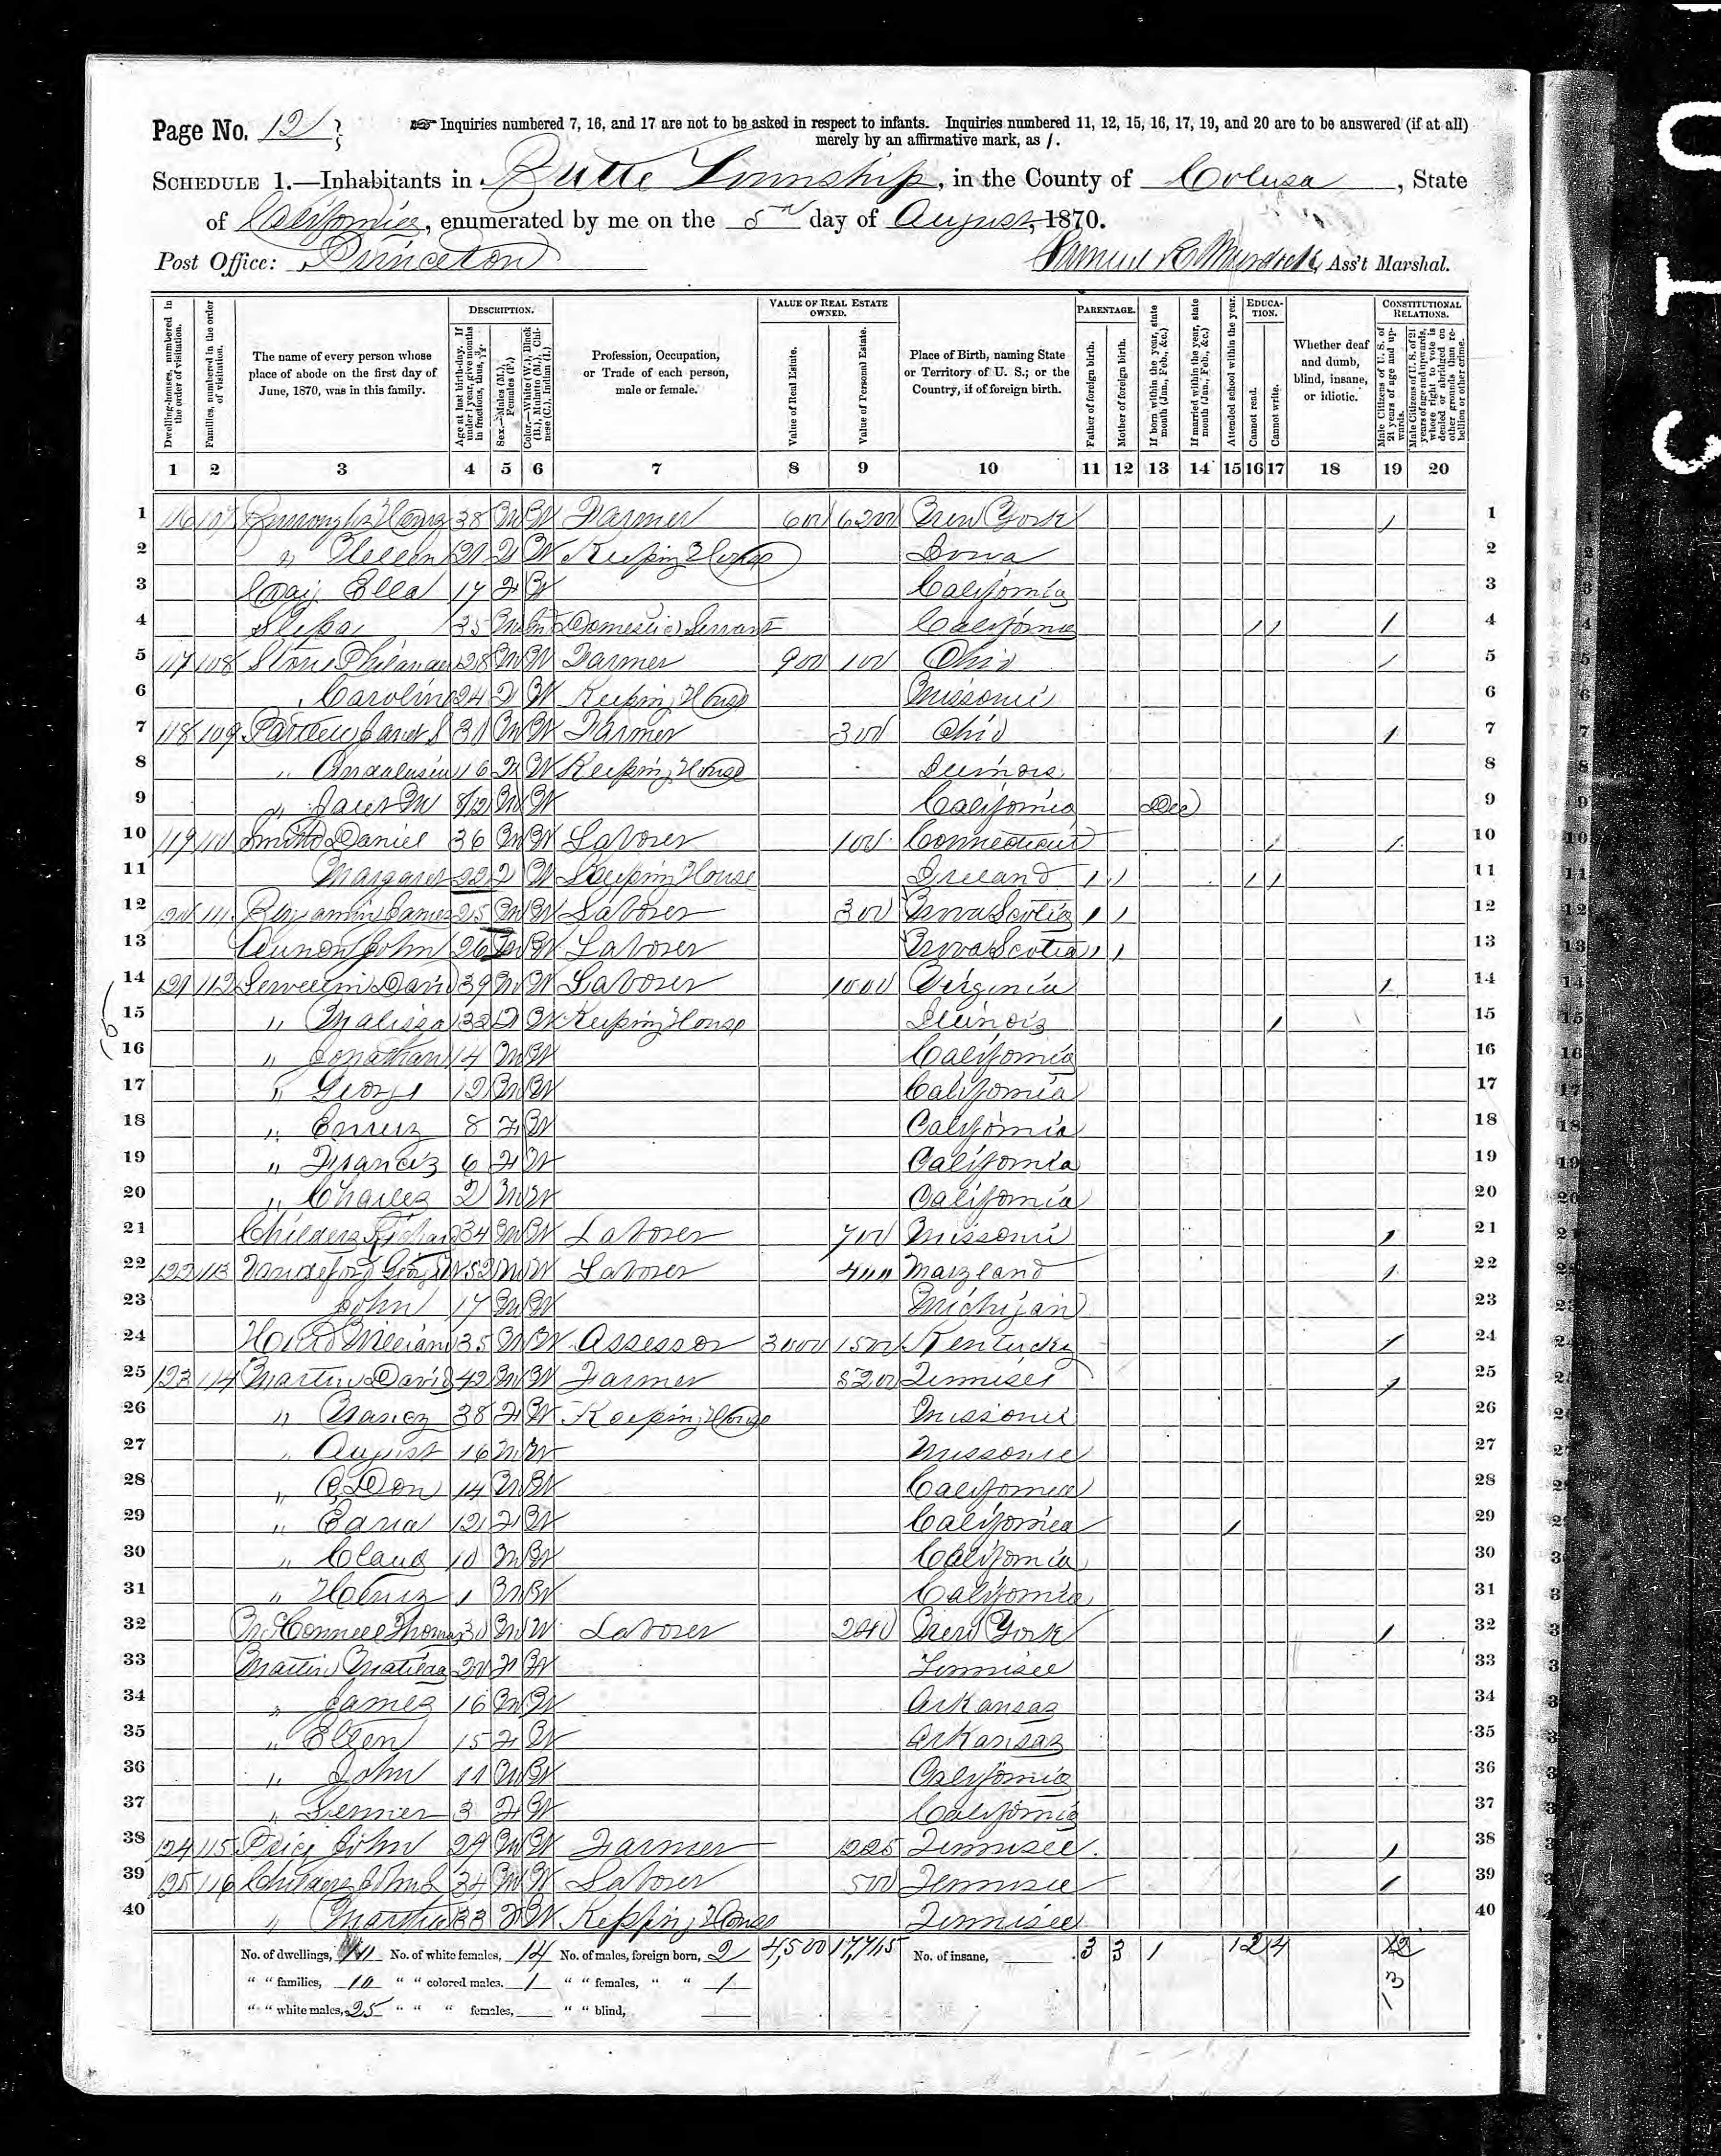 Page No. 12
Inquiries numbered 7, 16, and 17 are not to be asked in respect to infants. Inquiries numbered 11, 12, 15, 16, 17, 19, and 20 are to be answered (if at all)
merely by an affirmative mark, as /.
SCHEDULE 1.—Inhabitants in Butte Township, in the County of Colusa, State
of California, enumerated by me on the 5th day of August, 1870.
Post Office: Princeton
Samuel R, Ass't Marshal.
Dwelling-houses, numbered in the order of visitation.
Families, numbered in the order of visitation.
The name of every person whose place of abode on the first day of June, 1870, was in this family.
DESCRIPTION.
Age at last birth-day. If under 1 year, give months in fractions, thus, 3/12.
Sex.—Males (M.), Females (F.)
Color.—White (W.), Black (B.), Mulatto (M.), Chinese (C.), Indian (I.)
Profession, Occupation, or Trade of each person, male or female.
VALUE OF REAL ESTATE OWNED.
Value of Real Estate.
Value of Personal Estate.
Place of Birth, naming State or Territory of U. S.; or the Country, if of foreign birth.
PARENTAGE.
Father of foreign birth.
Mother of foreign birth.
If born within the year, state month (Jan., Feb., &c.)
If married within the year, state month (Jan., Feb., &c.)
Attended school within the year.
EDUCATION.
Cannot read.
Cannot write.
Whether deaf and dumb, blind, insane, or idiotic.
CONSTITUTIONAL RELATIONS.
Male Citizens of U. S. of 21 years of age and upwards.
Male Citizens of U. S. of 21 years of age and upwards, where right to vote is denied or abridged on other grounds than rebellion or other crime.
1 2 3 4 5 6 7 8 9 10 11 12 13 14 15 16 17 18 19 20
1 116 107 38 M W Farmer 600 6200 New York / 1
2 " Hellen 21 F W Keeping House Iowa 2
3 Ella 17 F W California 3
4 35 M Domestic Servant California / / / 4
5 117 108 Stone Philander 28 M W Farmer 900 100 Ohio / 5
6 " Caroline 24 F W Keeping House Missouri 6
7 118 109 31 M W Farmer 300 Ohio / 7
8 " Andalusia 16 F W Keeping House Illinois 8
9 " M 8/12 M W California Dec 9
10 119 110 Smith Daniel 36 M W Laborer 100 Connecticut / / 10
11 Margaret 22 F W Keeping House Ireland / / / / 11
12 120 111 Benjamin James 25 M W Laborer 300 Nova Scotia / / 12
13 John 26 M W Laborer Nova Scotia / / 13
14 121 112 David 39 M W Laborer 1000 Virginia / 14
15 " Malissa 32 F W Keeping House Illinois / 15
16 " Jonathan 14 M W California 16
17 " George 12 M W California 17
18 " 8 F W California 18
19 " Francis 6 F W California 19
20 " Charles 2 M W California 20
21 Childers Richard 34 M W Laborer 700 Missouri / 21
22 122 113 Vandeford George W 52 M W Laborer 400 Maryland / 22
23 John 17 M W Michigan 23
24 William 35 M W Assessor 3000 1500 Kentucky / 24
25 123 114 Martin David 42 M W Farmer 5200 Tennisee / 25
26 " Nancy 38 F W Keeping House Missouri 26
27 " August 16 M W Missouri 27
28 " O Don 14 M W California 28
29 " 12 F W California / 29
30 " Claud 10 M W California 30
31 " Henry 1 M W California 31
32 McConnell Thomas 30 M W Laborer 240 New York / 32
33 Martin Matilda 20 F W Tennisee 33
34 " James 16 M W Arkansas 34
35 " Ellen 15 F W Arkansas 35
36 " John 11 M W California 36
37 " 3 F W California 37
38 124 115 Price John 29 M W Farmer 1225 Tennisee / 38
39 125 116 Childers John S 34 M W Laborer 500 Tennisee / 39
40 " Martha 33 F W Kepping House Tennisee 40
No. of dwellings, 10 No. of white females, 14 No. of males, foreign born, 2 4,500 No. of insane, 3 3 1 1 2 4 12
" " families, 10 " " colored males, 1 " " females, " " 1 13
" " white males, 25 " " " females, " " blind,